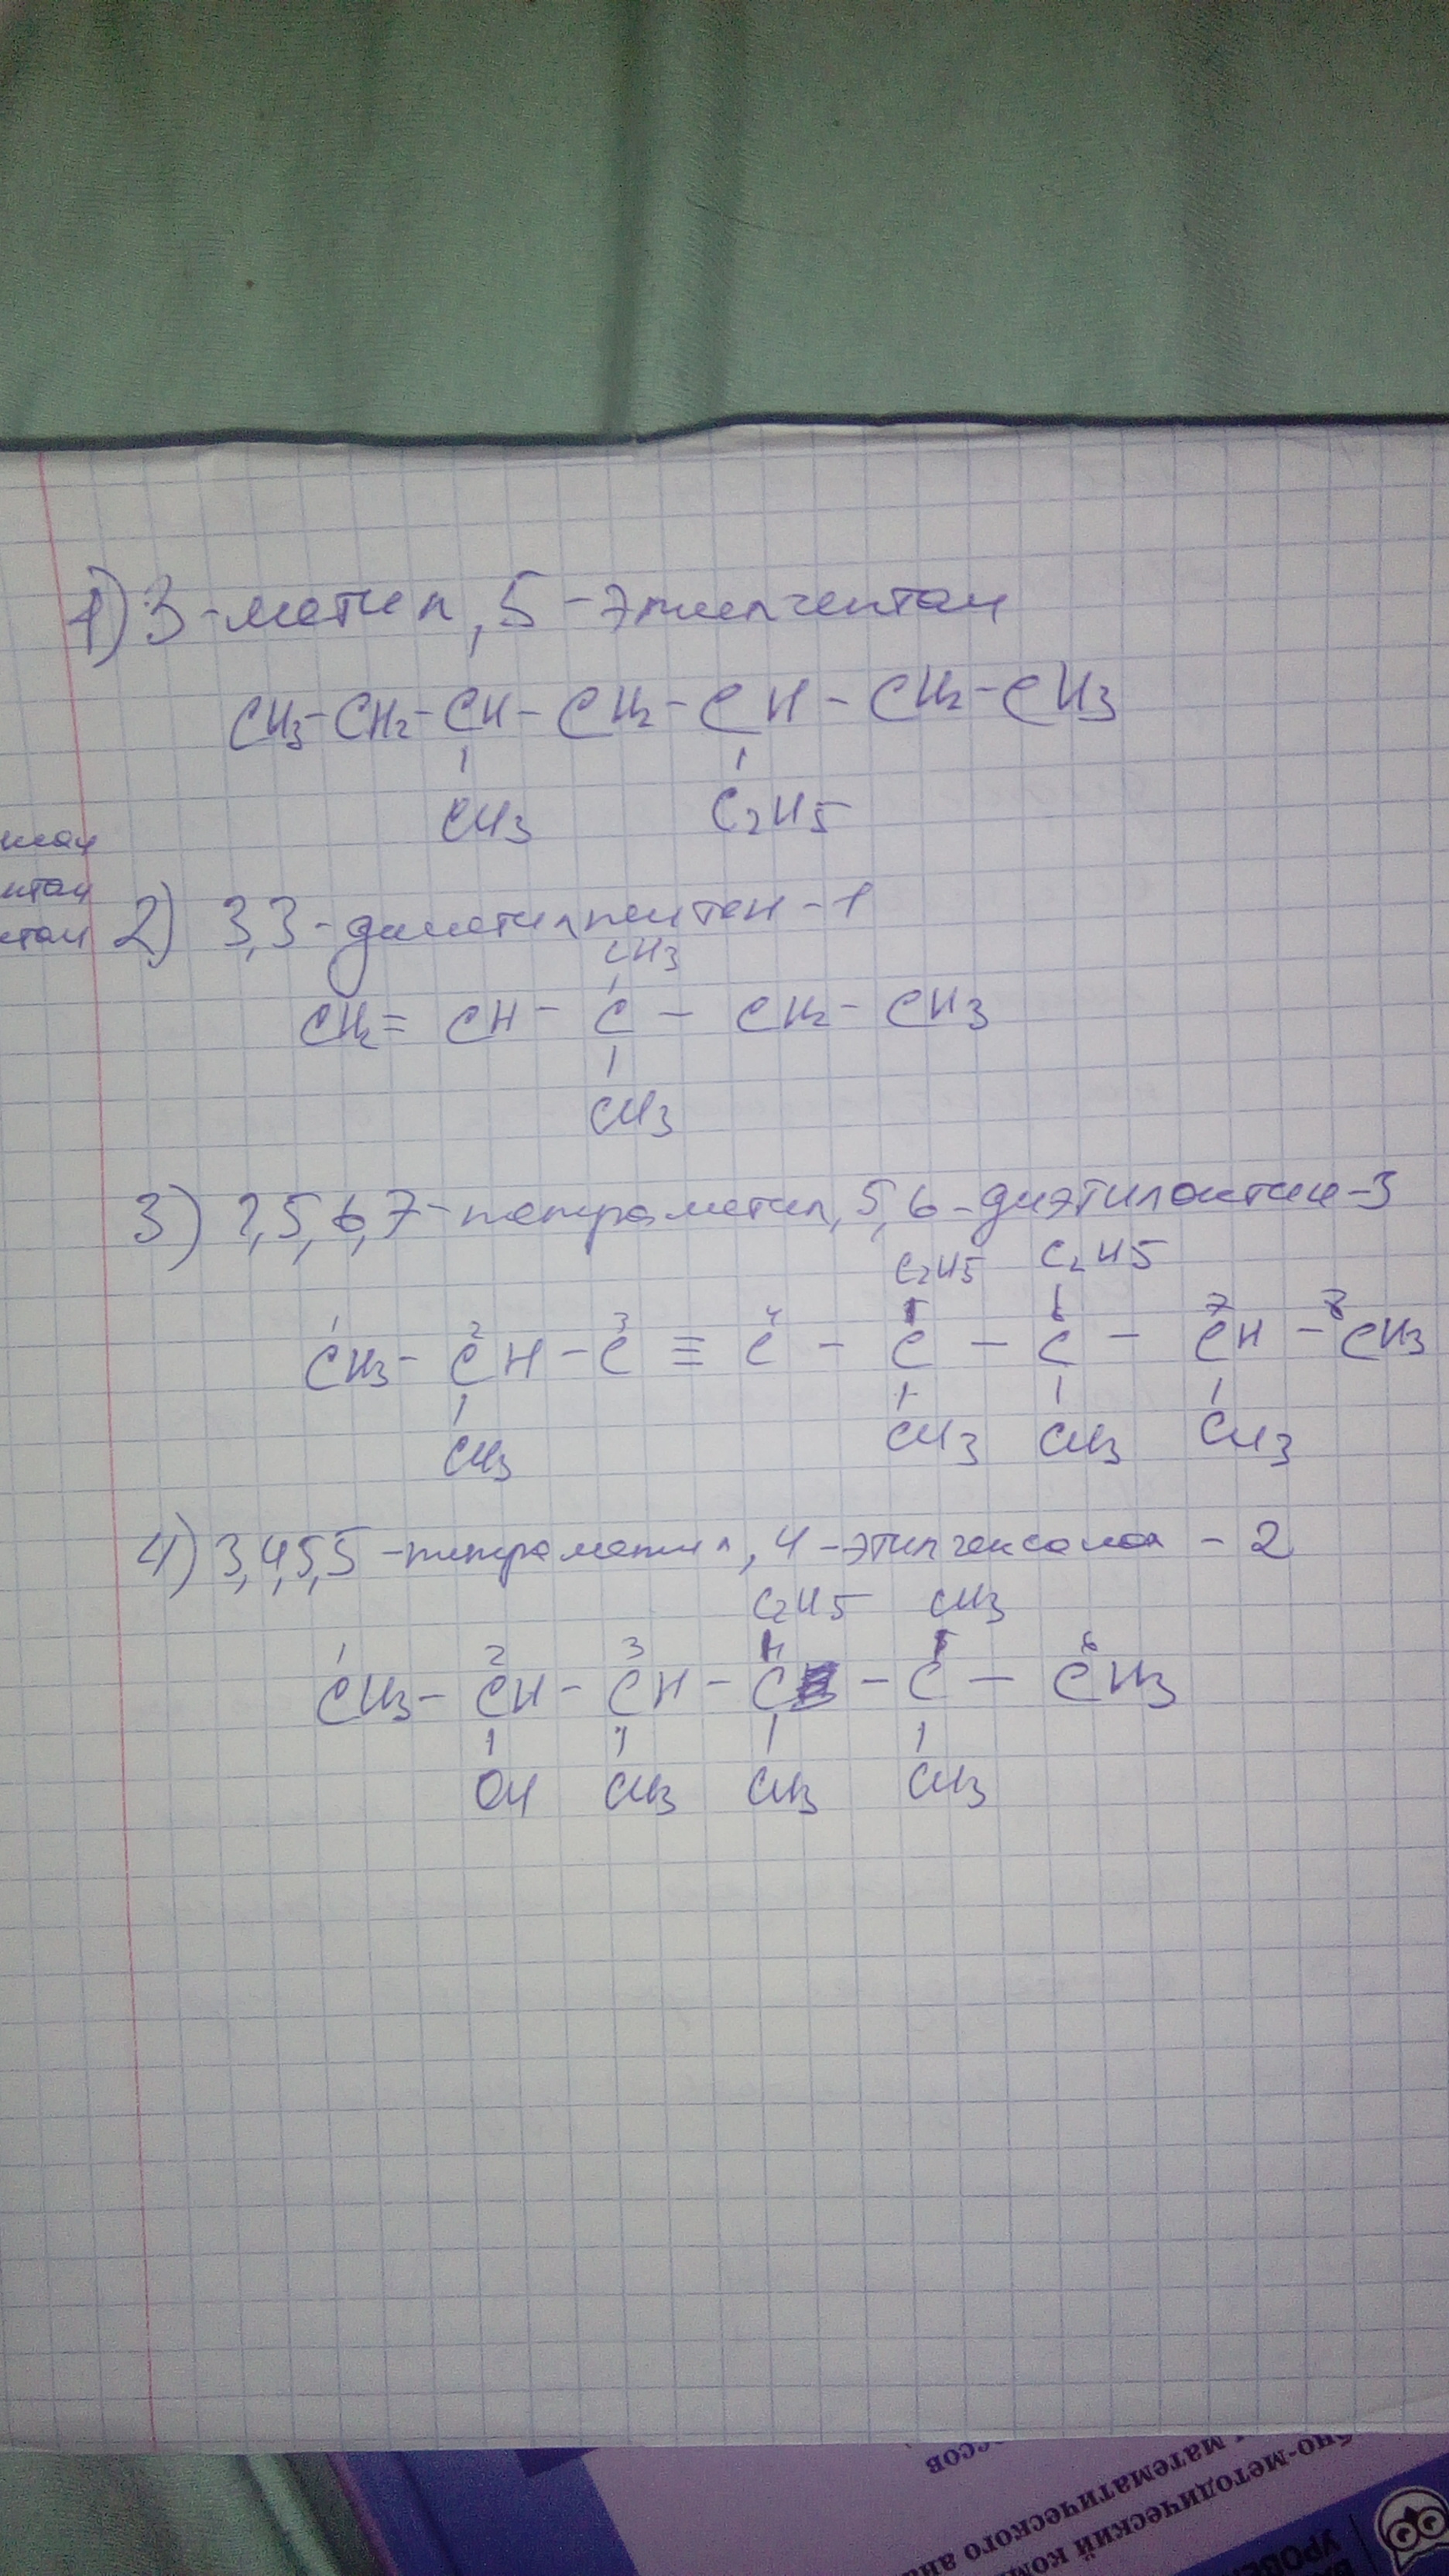 1) 3-метил, 5-этилгептан
CH3-CH2-CH-CH2-CH-CH2-CH3
CH3 C2H5
2) 3,3-диметилпентен-1
CH3
CH2=CH-C-CH2-CH3
CH3
3) 2,5,6,7-тетраметил, 5,6-диэтилоктин-3
C2H5 C2H5
1 2 3 4 5 6 7 8
CH3-CH-C≡C-C-C-CH-CH3
CH3 CH3 CH3 CH3
4) 3,4,5,5-тетраметил, 4-этилгексанол-2
C2H5 CH3
1 2 3 4 5 6
CH3-CH-CH-C-C-CH3
OH CH3 CH3 CH3
нтан
ссов
математического ана
но-методический ком
УРОВЕ